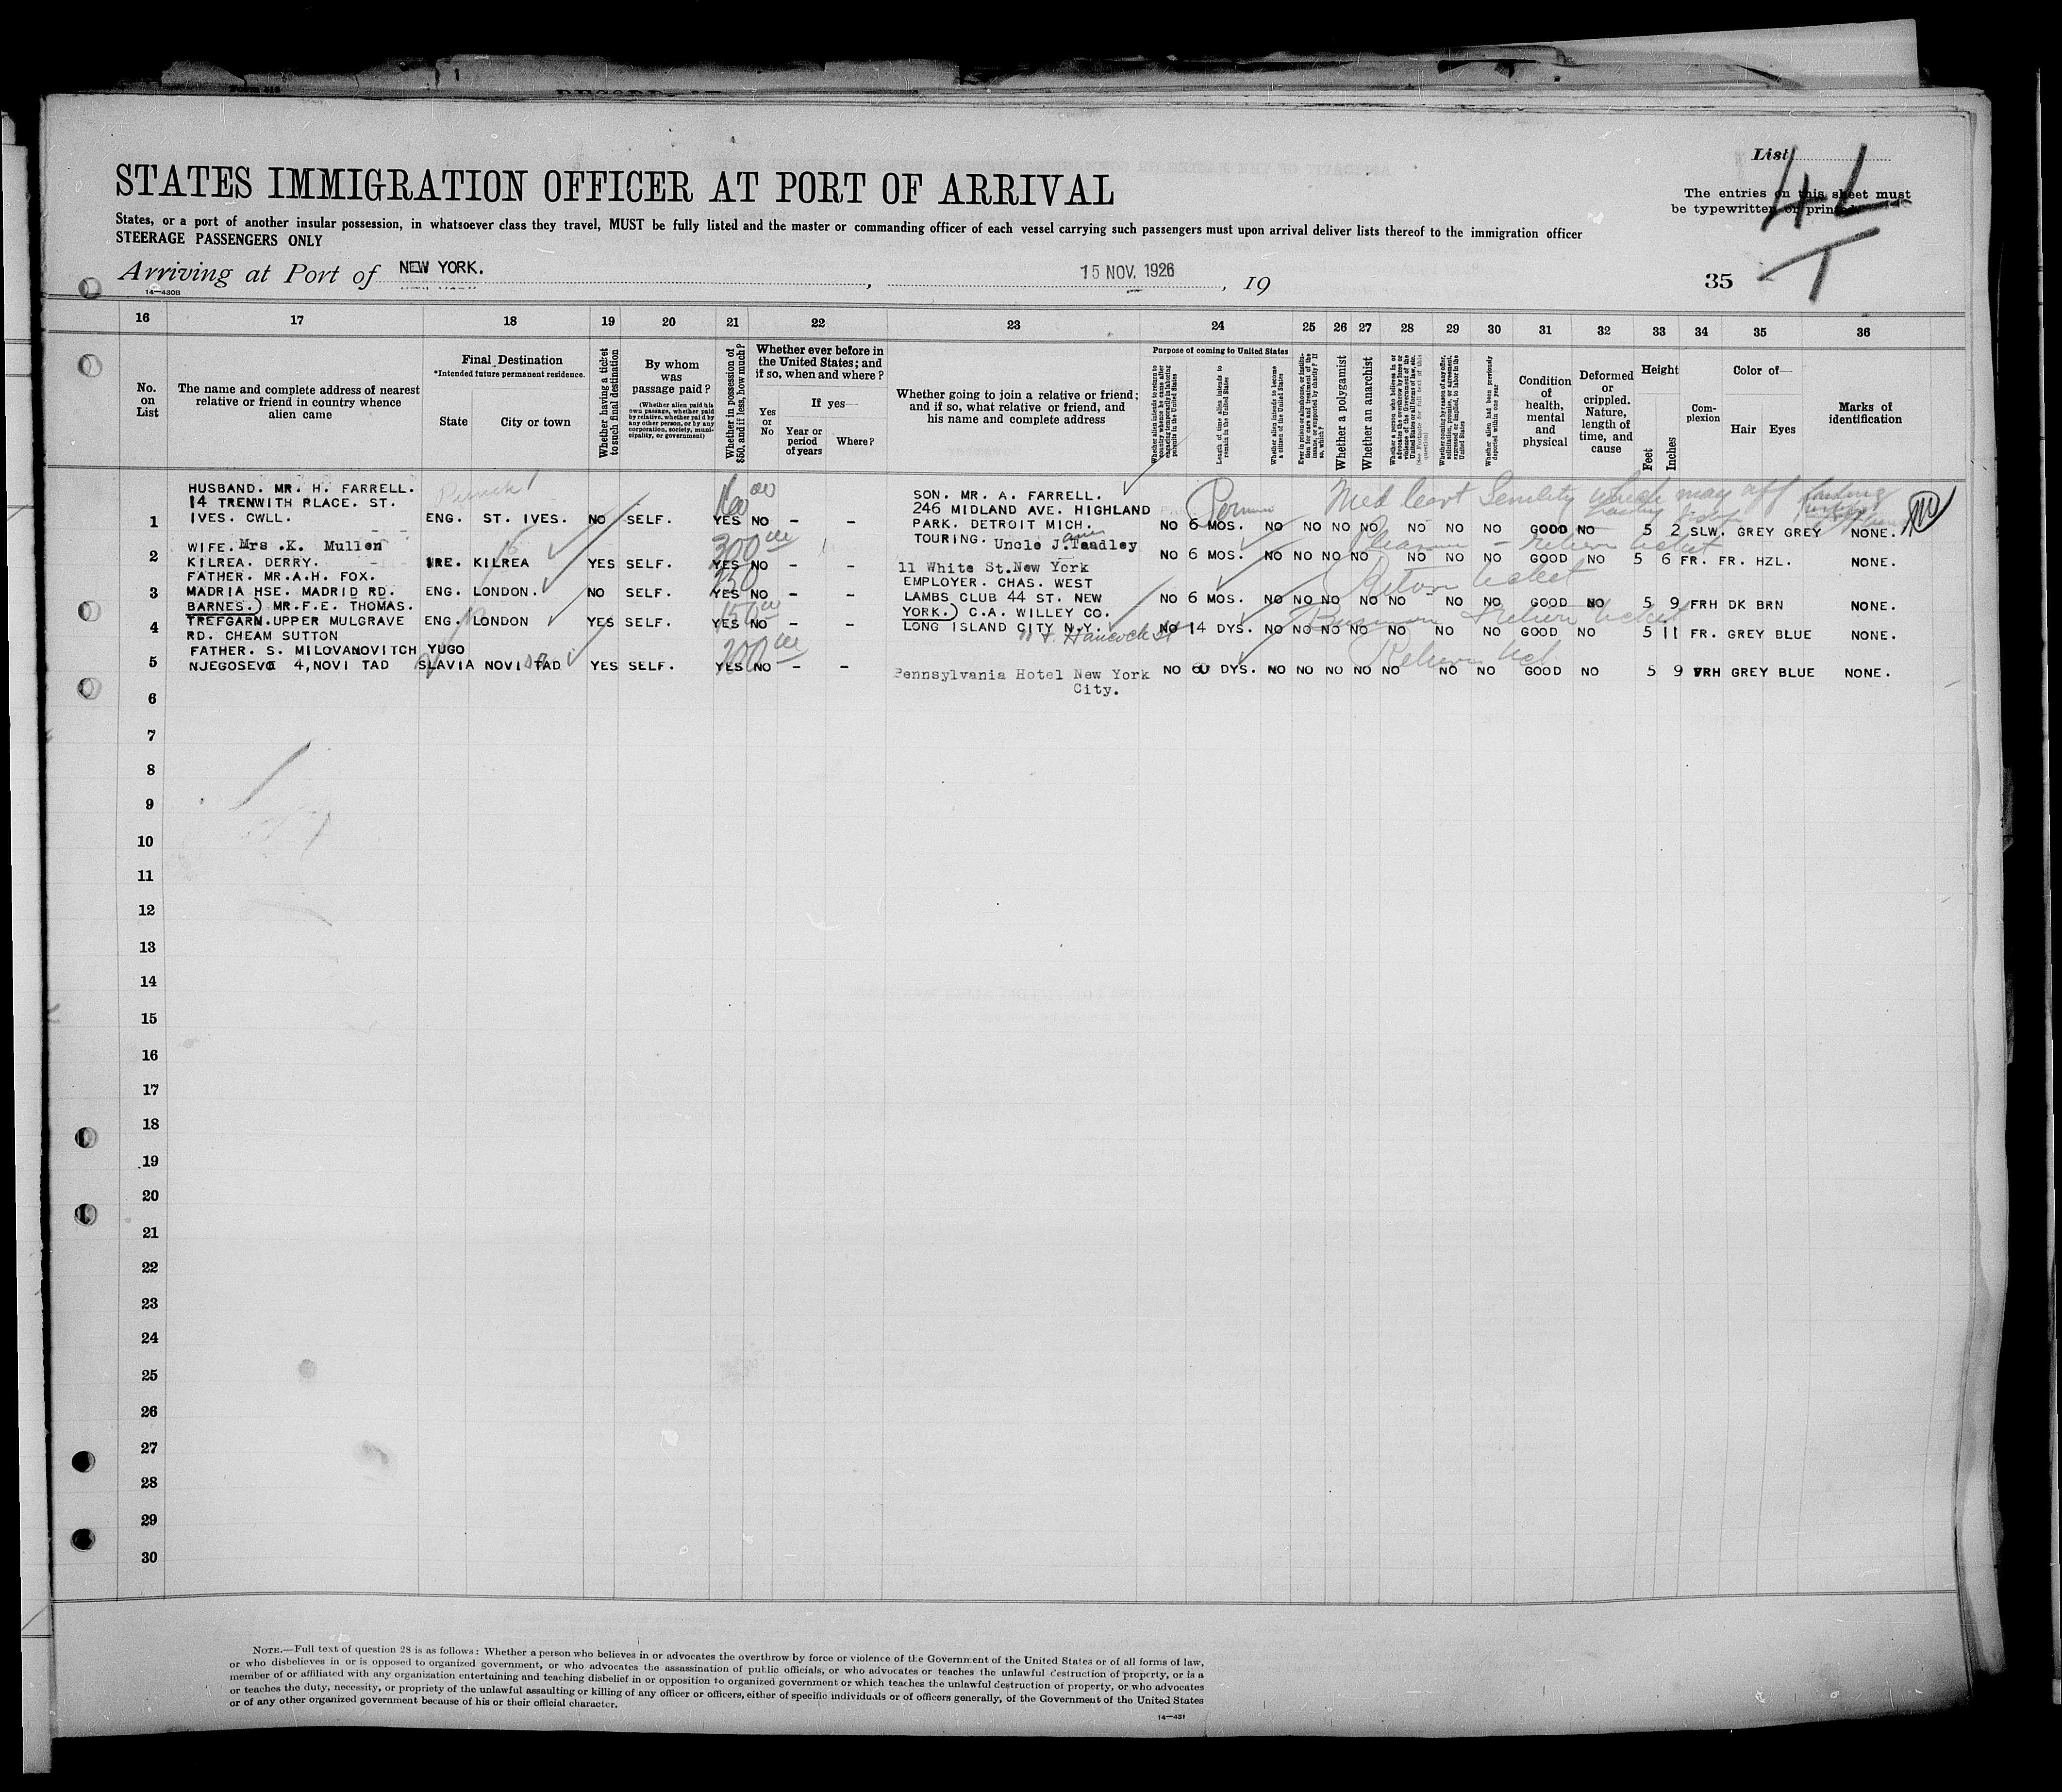 List
The entries on this sheet must
be typewritten or printed.
44
STATES IMMIGRATION OFFICER AT PORT OF ARRIVAL
States, or a port of another insular possession, in whatsoever class they travel, MUST be fully listed and the master or commanding officer of each vessel carrying such passengers must upon arrival deliver lists thereof to the immigration officer
STEERAGE PASSENGERS ONLY
Arriving at Port of NEW YORK. , 15 NOV. 1926 , 19 35
14—430B
16 17 18 19 20 21 22 23 24 25 26 27 28 29 30 31 32 33 34 35 36
No. on List
The name and complete address of nearest relative or friend in country whence alien came
Final Destination
*Intended future permanent residence.
State City or town
Whether having a ticket to such final destination
By whom was passage paid?
(Whether alien paid his own passage, whether paid by relative, whether paid by any other person, or by any corporation, society, municipality, or government)
Whether in possession of $50, and if less, how much?
Whether ever before in the United States; and if so, when and where?
Yes or No
If yes—
Year or period of years
Where?
Whether going to join a relative or friend; and if so, what relative or friend, and his name and complete address
Purpose of coming to United States
Length of time alien intends to remain in the United States
Whether alien intends to become a citizen of the United States
Whether a polygamist
Whether an anarchist
Whether alien had been previously deported within one year
Condition of health, mental and physical
Deformed or crippled. Nature, length of time, and cause
Height
Feet Inches
Complexion
Color of—
Hair Eyes
Marks of identification
HUSBAND. MR. H. FARRELL.
14 TRENWITH PLACE. ST.
1 IVES. CWLL. ENG. ST. IVES. NO SELF. YES NO - -
SON. MR. A. FARRELL.
246 MIDLAND AVE. HIGHLAND
PARK. DETROIT MICH. NO 6 MOS. NO NO NO NO NO NO NO GOOD NO 5 2 SLW. GREY GREY NONE.
WIFE. Mrs .K. Mullen
2 KILREA. DERRY. IRE. KILREA YES SELF. YES NO - -
300
TOURING. Uncle J.Teadley
11 White St.New York NO 6 MOS. NO NO NO NO NO NO NO GOOD NO 5 6 FR. FR. HZL. NONE.
FATHER. MR.A.H. FOX.
3 MADRIA HSE. MADRID RD. ENG. LONDON. NO SELF. YES NO - -
BARNES.) MR.F.E. THOMAS.
150
EMPLOYER. CHAS. WEST
LAMBS CLUB 44 ST. NEW NO 6 MOS. NO NO NO NO NO NO NO GOOD NO 5 9 FRH DK BRN NONE.
Return ticket
YORK.) C.A. WILLEY CO.
4 TREFGARN.UPPER MULGRAVE ENG. LONDON YES SELF. YES NO - -
RD. CHEAM SUTTON
150
LONG ISLAND CITY N.Y. NO 14 DYS. NO NO NO NO NO NO NO GOOD NO 5 11 FR. GREY BLUE NONE.
Hancock St
FATHER. S. MILOVANOVITCH YUGO
5 NJEGOSEVE 4,NOVI TAD SLAVIA NOVI TAD YES SELF. YES NO - -
200
Pennsylvania Hotel New York
City.
NO 60 DYS. NO NO NO NO NO NO NO GOOD NO 5 9 FRH GREY BLUE NONE.
6
7
8
9
10
11
12
13
14
15
16
17
18
19
20
21
22
23
24
25
26
27
28
29
30
NOTE.—Full text of question 28 is as follows: Whether a person who believes in or advocates the overthrow by force or violence of the Government of the United States or of all forms of law,
or who disbelieves in or is opposed to organized government, or who advocates the assassination of public officials, or who advocates or teaches the unlawful destruction of property, or is a
member of or affiliated with any organization entertaining and teaching disbelief in or opposition to organized government or which teaches the unlawful destruction of property, or who advocates
or teaches the duty, necessity, or propriety of the unlawful assaulting or killing of any officer or officers, either of specific individuals or of officers generally, of the Government of the United States
or of any other organized government because of his or their official character.
14—431